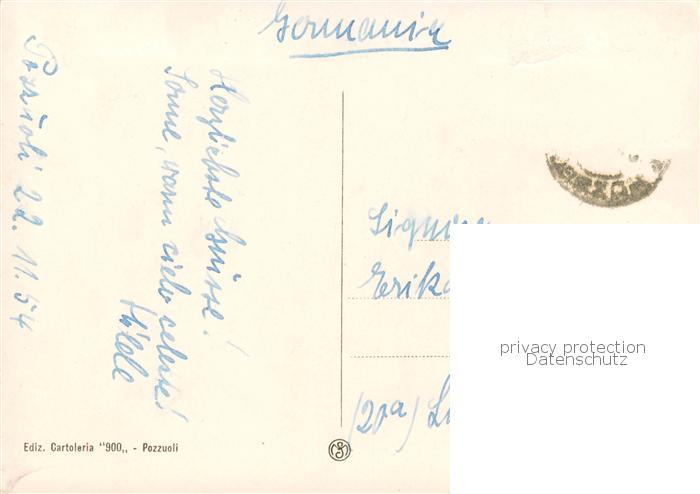 Germania
Pozzuoli 22. 11. 54
Herzlichste Grüsse!
Sonne, warm cielo celeste!
Hilde
Signora
Erika
(20a) L
privacy protection
Datenschutz
Ediz. Cartoleria "900„ - Pozzuoli